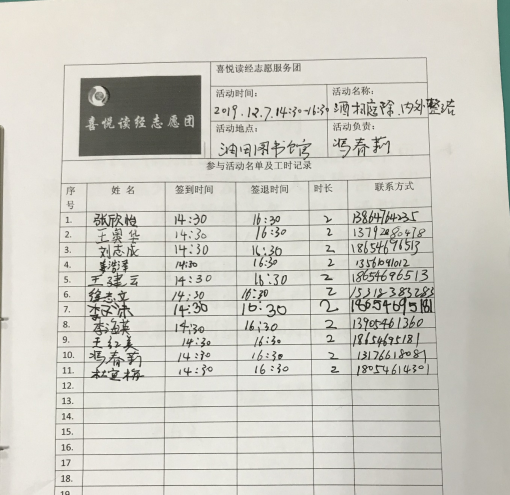 喜悦读经志愿团
喜悦读经志愿服务团
活动时间： 活动名称：
2019.12.7.14:30-16:30 洒扫庭除、内外整洁
活动地点： 活动负责：
油田图书馆 冯春莉
参与活动名单及工时记录
序号 姓 名 签到时间 签退时间 时长 联系方式
1. 张欣怡 14:30 16:30 2 13864764235
2. 王奥华 14:30 16:30 2
3. 刘志成 14:30 16:30 2 18654696513
4. 14:30 16:30 2 13561091012
5. 王建云 14:30 16:30 2 18654696513
6. 徐志文 14:30 16:30 2 15318383283
7. 14:30 16:30 2 18654695181
8. 李海英 14:30 16:30 2 13905461360
9. 王红美 14:30 16:30 2 18654695181
10. 冯春莉 14:30 16:30 2 13176618081
11. 14:30 16:30 2 18054614301
12.
13.
14.
15.
16.
17
18.
19